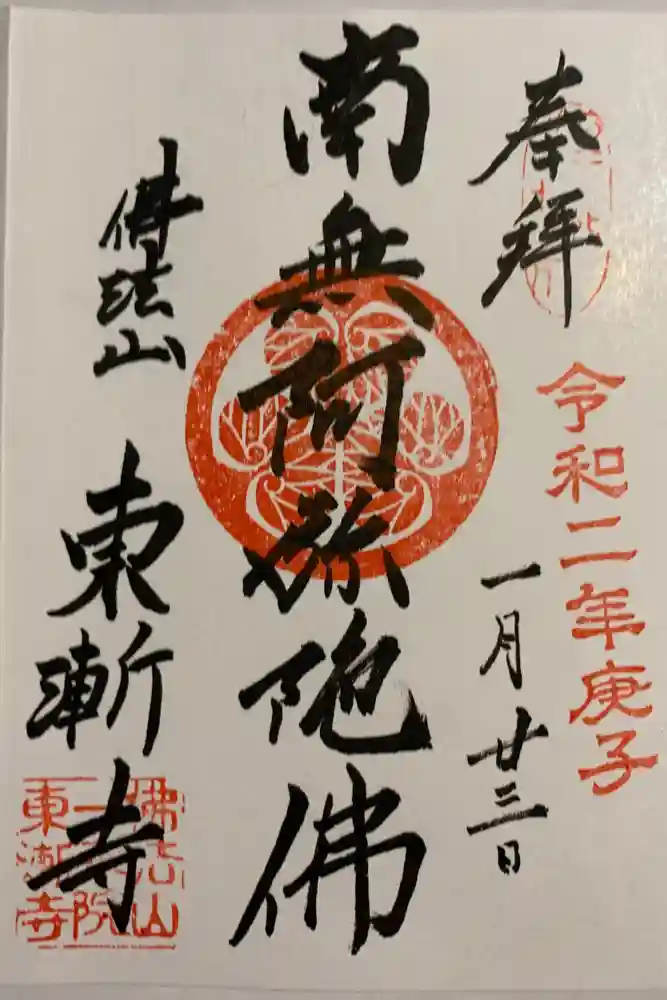 奉拝
令和二年庚子
一月廿三日
南無阿弥陀佛
佛法山
東漸寺
佛法山
一乗院
東漸寺